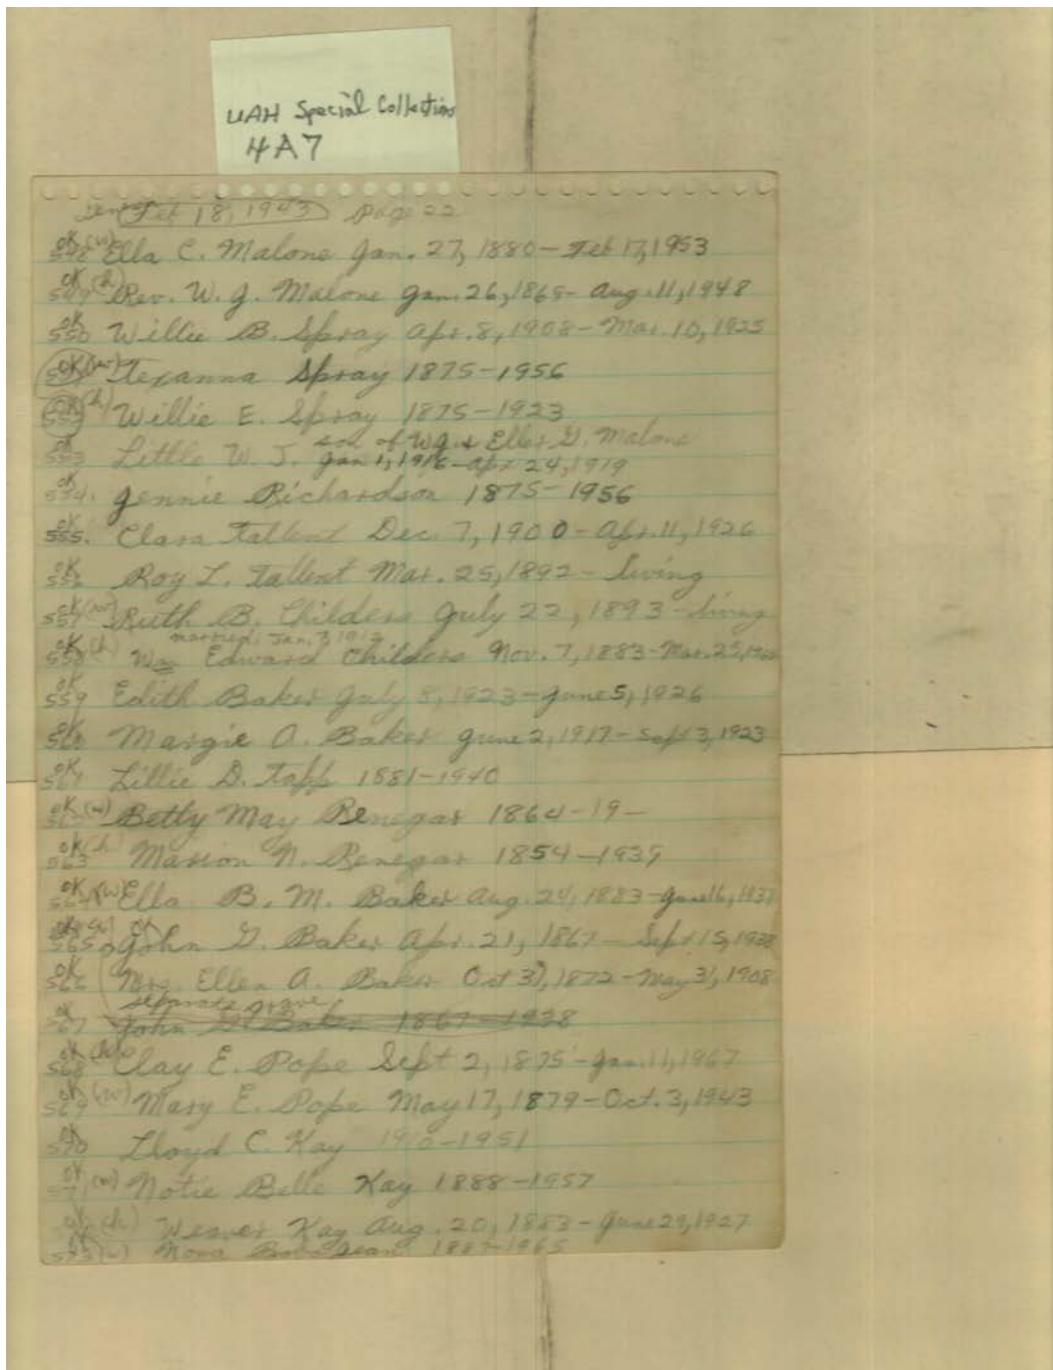 UAH Special Collections
4A7
Feb 18, 1943 Page 22
OK 548 (w) Ella C. Malone Jan. 27, 1880 - Feb 17, 1953
OK 549 (h) Rev. W. J. Malone Jan. 26, 1865 - Aug. 11, 1948
OK 550 Willie B. Spray Apr. 8, 1908 - Mar. 10, 1925
OK (w) Texanna Spray 1875-1956
OK 552 (h) Willie E. Spray 1875-1923
son of W.J. & Eller G. Malone
OK 553 Little W. J. Jan 1, 1916 - Apr 24, 1919
OK 554. Jennie Richardson 1875-1956
555. Clara Tallent Dec. 7, 1900 - Apr. 11, 1926
OK 556 Roy L. Tallent Mar. 25, 1892 - living
OK 557 (w) Ruth B. Childers July 22, 1893 - living
married: Jan. 7, 1912
OK 558 (h) Wm Edward Childers Nov. 7, 1883 - Mar. 25,
OK 559 Edith Baker July 8, 1923 - June 5, 1926
OK 560 Margie A. Baker June 2, 1917 - Sept 3, 1923
OK 561 Lillie D. Tapp 1881-1940
OK (w) Betty May Renegar 1864-19-
OK (h) 563 Marion N. Renegar 1854-1935
OK 564 (w) Ella B. M. Baker Aug. 24, 1883 - June 16, 1937
565 John G. Baker Apr. 21, 1867 - Sept 15, 1938
OK 566 Mrs. Ellen A. Baker Oct 31, 1872 - May 31, 1908
separate grave
OK 567 John G. Baker 1867-1938
OK 568 (h) Clay E. Pope Sept 2, 1875 - Jan. 11, 1967
OK 569 (w) Mary E. Pope May 17, 1879 - Oct. 3, 1943
OK 570 Lloyd C. Kay 1910-1951
OK 571 (w) Notie Belle Kay 1888-1957
OK (h) Weaver Kay Aug. 20, 1883 - June 29, 1927
573 (w) Nora 1887-1965